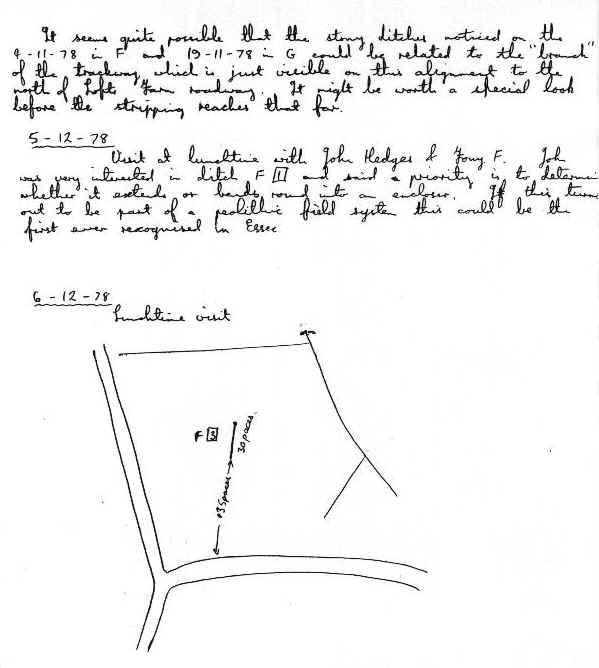 It seems quite possible that the stony ditches noticed on the
9-11-78 in F and 19-11-78 in G could be related to the "branch"
of the trackway which is just visible on this alignment to the
north of Lofts Farm roadway. It might be worth a special look
before the stripping reaches that far.
5-12-78
Visit at lunchtime with John Hedges & Tony F. Joh
was very interested in ditch F 1 and said a priority is to determi
whether it extends or bends round into an encloser. If this turn
out to be part of a neolithic field system this could be the
first ever recognised in Essex
6-12-78
Lunchtime visit
F 3
30 paces